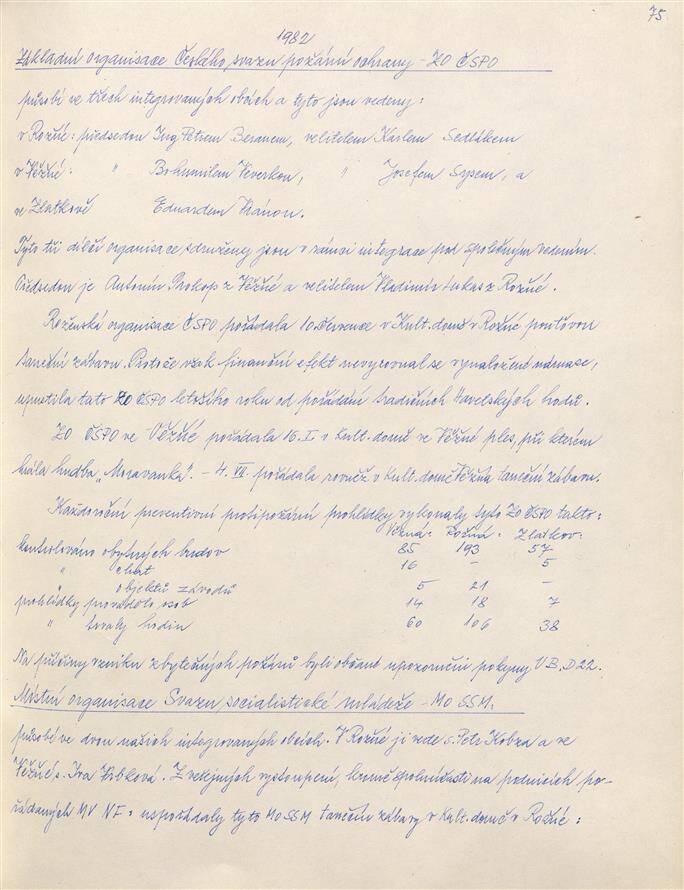 75.
1982
Základní organisace Českého svazu požární ochrany - ZO ČSPO
působí ve třech integrovaných obcích a tyto jsou vedeny:
v Rožné: předsedou Ing. Petrem Beranem, velitelem Karlem Sedlákem
v Věžné: " Bohumilem Veverkou, " Josefem Sysem, a
ve Zlatkově Eduardem Vránou.
Tyto tři dílčí organisace, sdruženy jsou v rámci integrace pod společným vedením.
Předsedou je Antonín Prokop z Věžné a velitelem Vladimír Lukas z Rožné.
Roženská organisace ČSPO pořádala 10. července v Kult. domě v Rožné pouťovou
taneční zábavu. Protože však finanční efekt nevyrovnal se vynaložené námaze,
upustila tato ZO ČSPO letošního roku od pořádání tradičních Havelských hodů.
ZO ČSPO ve Věžné pořádala 16. I. v Kult. domě ve Věžné ples, při kterém
hrála hudba „Moravanka". - 4. VII. pořádala rovněž v Kult. domě Věžná taneční zábavu.
Každoroční preventivní protipožární prohlídky vykonaly tyto ZO ČSPO takto:
Věžná: Rožná: Zlatkov:
kontrolováno obytných budov 85 193 57
" chat 16 - 5
" objektů závodů 5 21 -
prohlídky provádělo osob 14 18 7
" trvaly hodin 60 106 38
Na příčiny vzniku zbytečných požárů byli občané upozorněni pokyny
Místní organisace Svazu socialistické mládeže - MO SSM.
působí ve dvou našich integrovaných obcích. V Rožné ji vede s. Petr Kobza a ve
Věžné s. Iva . Z veřejných vystoupení, kromě spoluúčasti na podnicích po-
řádaných MV NF, uspořádaly tyto MO SSM taneční zábavy v Kult. domě v Rožné: